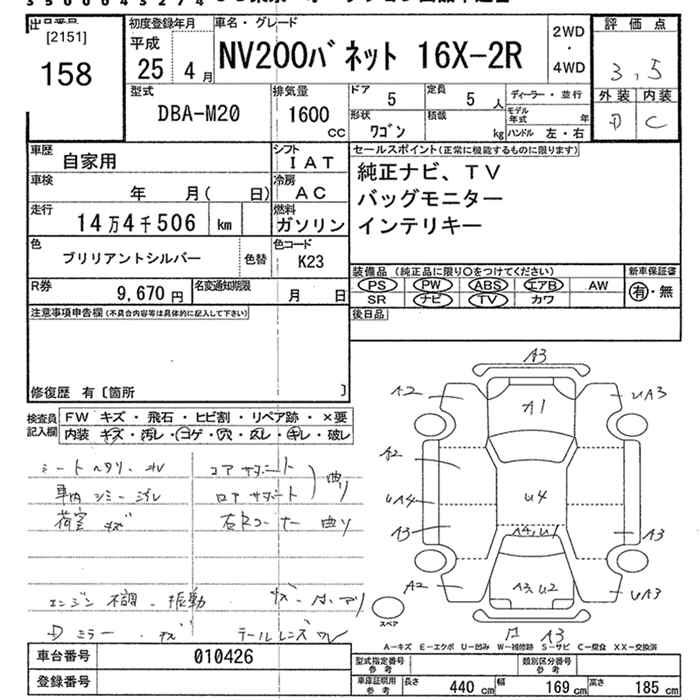 出品番号
[2151]
158
初度登録年月
平成
25年 4月
車名・グレード
NV200バネット 16X-2R
2WD
・
4WD
評価点
3.5
外装 内装
D C
型式
DBA-M20
排気量
1600
cc
ドア
5
定員
5人
形状
ワゴン
積載
kg
ディーラー・並行
モデル年式 年
ハンドル 左・右
車歴
自家用
シフト
IAT
車検
年 月( 日)
冷房
AC
走行
14万4千506 km
燃料
ガソリン
色
ブリリアントシルバー
色替
色コード
K23
R券
9,670円
名変通知期限
月 日
セールスポイント(正常に機能するものに限ります)
純正ナビ、TV
バッグモニター
インテリキー
装備品 (純正品に限り○をつけてください)
新車保証書
PS PW ABS エアB AW
SR ナビ TV カワ
有・無
後日品
注意事項申告欄(不具合内容等は具体的に記入して下さい)
修復歴 有〔箇所 〕
検査員記入欄
FW キズ・飛石・ヒビ割・リペア跡・×要
内装 キズ・汚レ・コゲ・穴・スレ・キレ・破レ
シートヘタリ・スレ
コアサポート
曲り
車内
ロアサポート
荷室 キズ
曲り
エンジン不調・振動
Dミラー・キズ
テールレンズ
A3
A2
A1
UA3
A2
U4
UA4
A3
A4,U1
A3
A2
A3,U2
UA3
A3
スペア
A-キズ E-エクボ U-凹み W-補修跡 S-サビ C-腐食 XX-交換済
車台番号
010426
登録番号
型式指定番号 参考
類別区分番号 参考
車庫証明用 参考
長さ 440 cm 幅 169 cm 高さ 185 cm